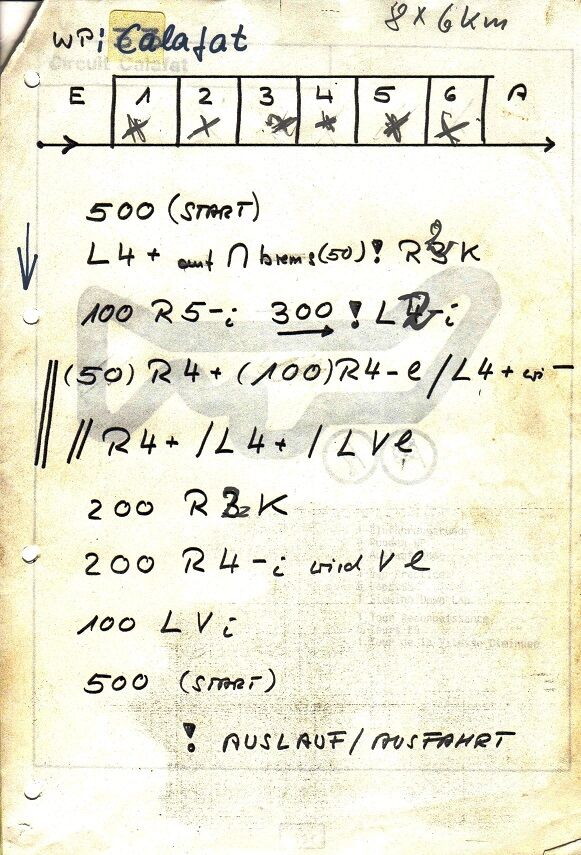 8 x 6 km
WP i Calafat
Circuit Calafat
E 1 2 3 4 5 6 A
500 (START)
L4+ auf ∩ brems (50) ! R2K
100 R5-i 300 ! L2-i
(50) R4+ (100) R4-e / L4+ wi -
// R4+ / L4+ / LVe
200 R2K
200 R4-i wird Ve
100 LVi
500 (START)
! AUSLAUF/AUSFAHRT